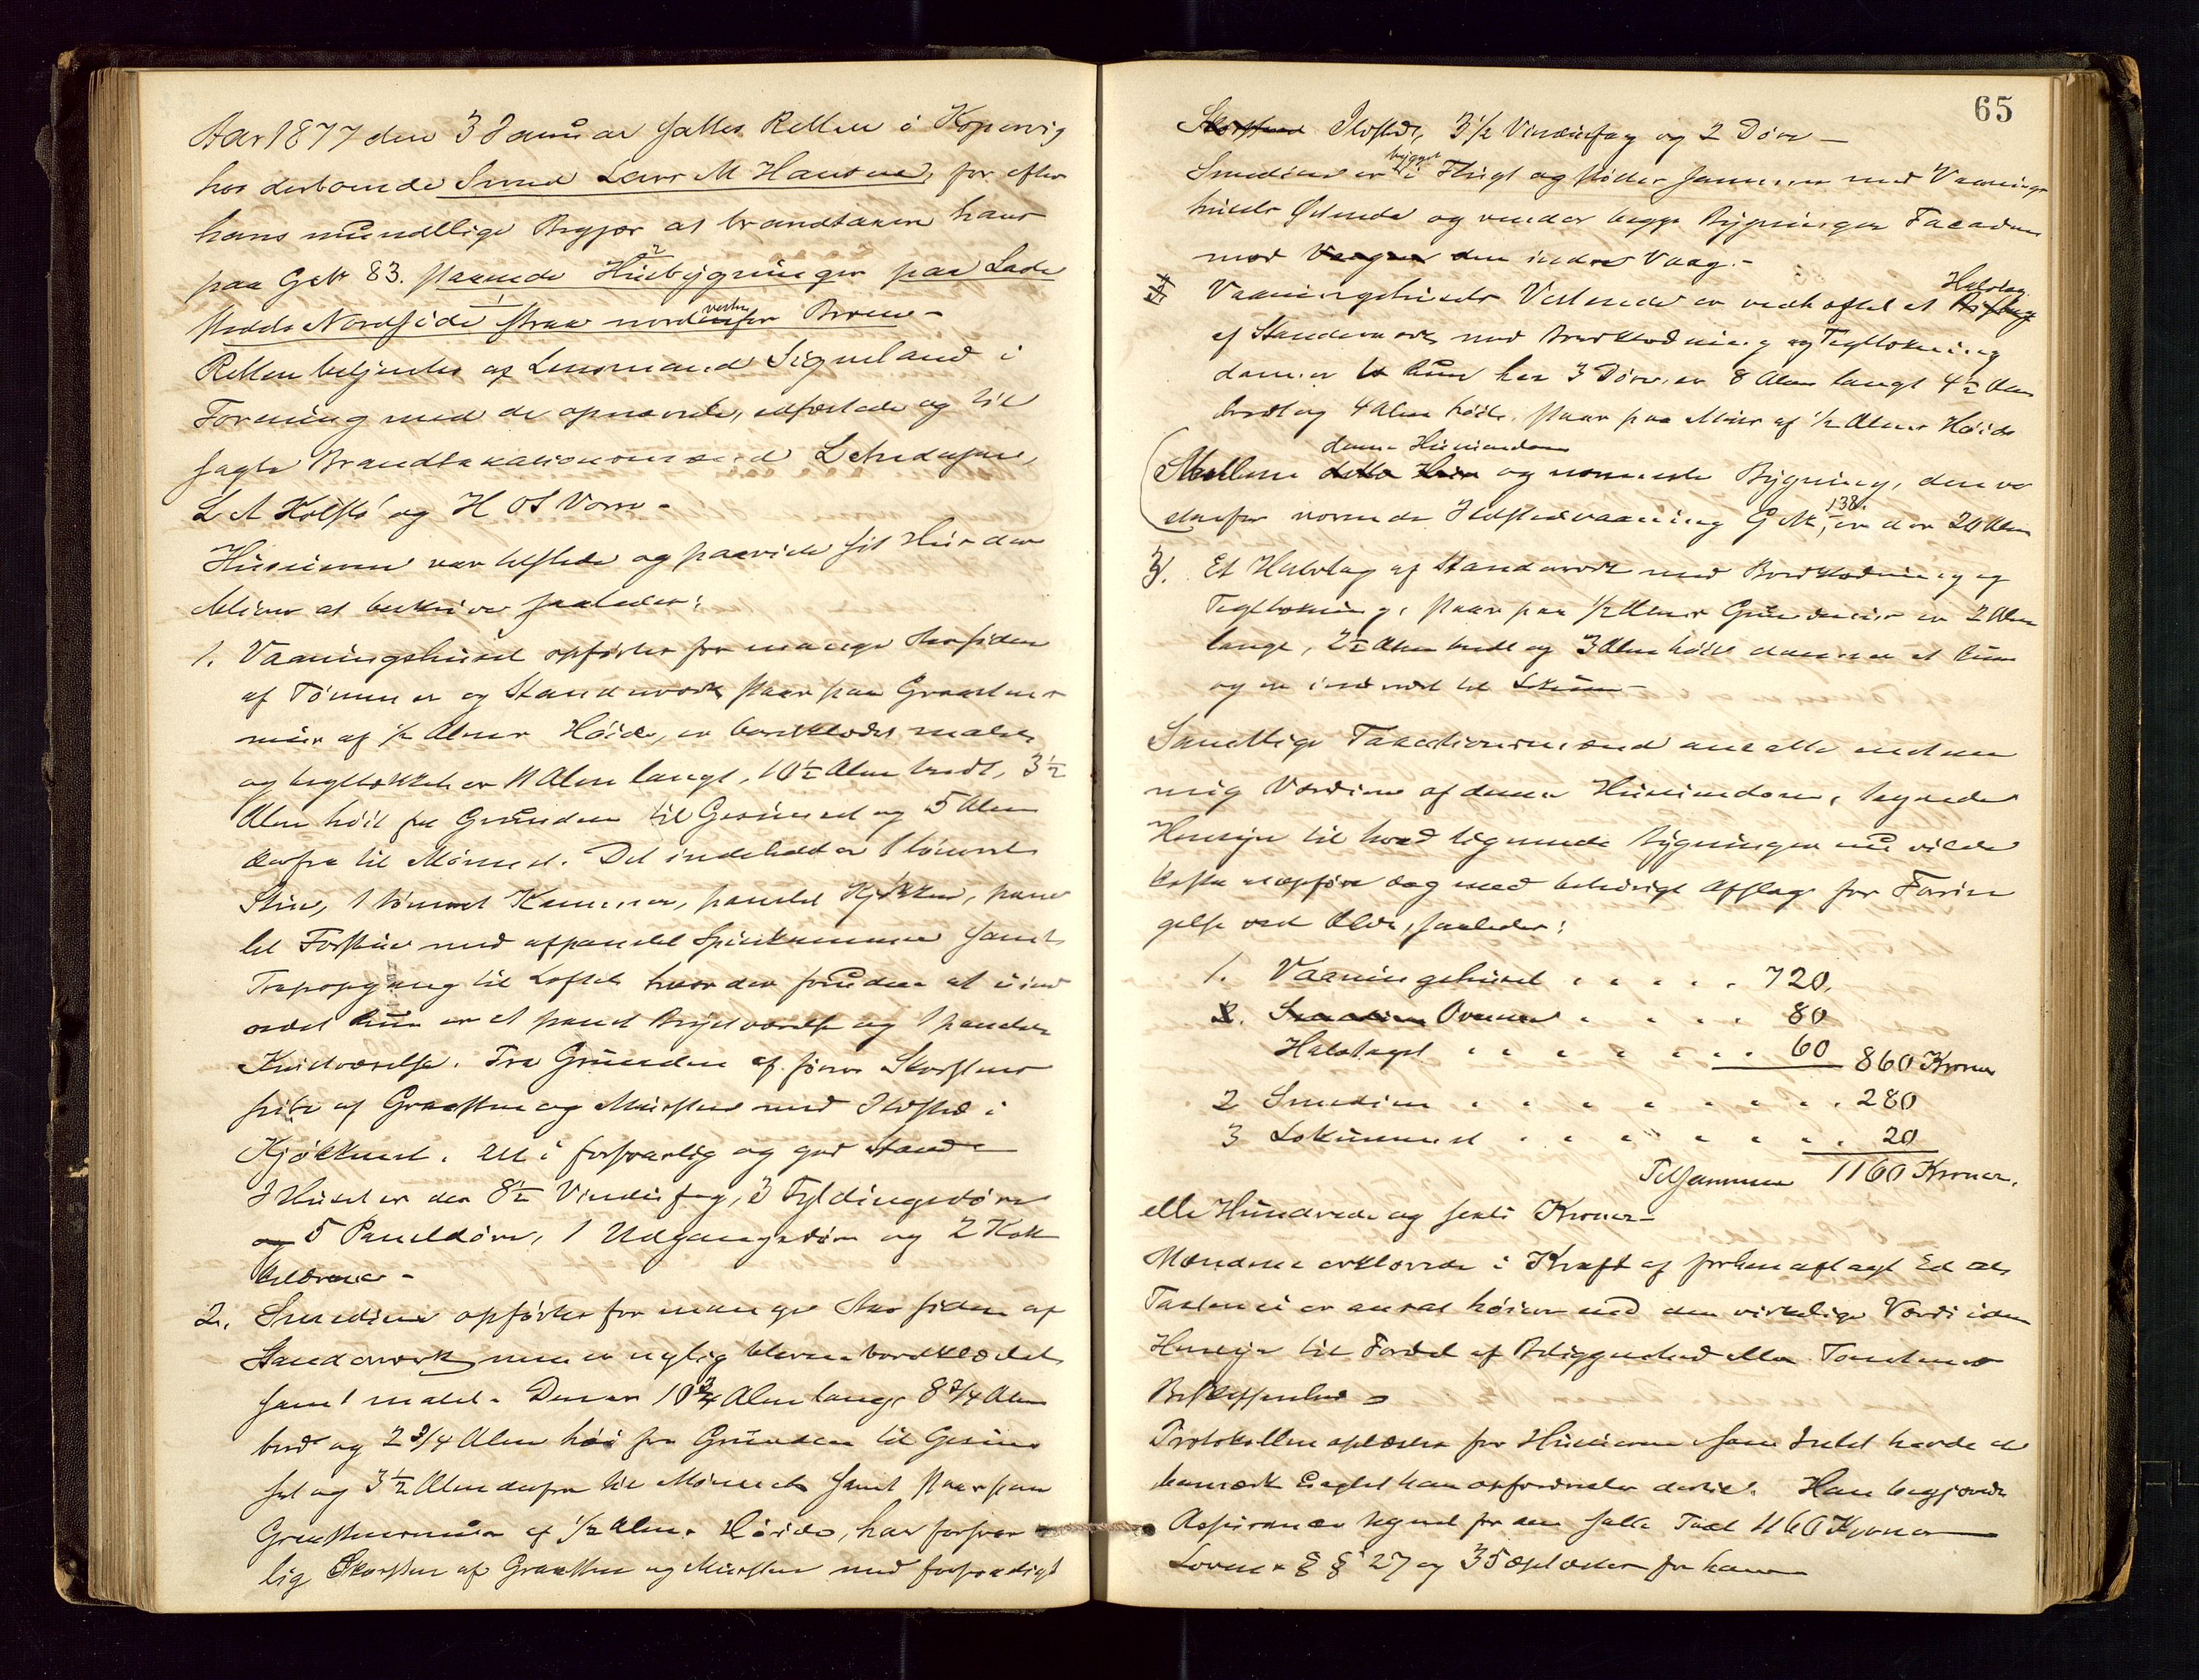 Aar 1877 den 3 Januar sattes Retten i Kopervig
hos derboende Smed Lars M Hansen, for efter
hans mundtlige Begjær at brandtaxere hans
paa GNr 83. staaende 2 Husbygninger paa Lade
stedets Nordside strax nordvestenfor Broen -
Retten betjentes af Lensmand Signeland i
Forening med de opnævnte, edfæstede og til
sagte Brandtaxationsmænd L Andersen,
L A Kolstø og H O S Vorre -
Huseieren var tilstede og paaviste sit Hus der
bliver at beskrive saaledes:
1. Vaaningshuset opførtes for mange Aar siden
af Tømmer og Standerværk staar paa Graasteens
muur af 1/2 Alens Høide, er bordklædt malet
og tegltækket er 11 Alen langt, 10 1/2 Alen bredt, 3 1/2
Alen høit fra Grunden til Gesimset og 5 Alen
derfra til Mønnet. Det indeholder 1 tømret
Stue, 1 tømret Kammer, panelet Kjøkken, pane
let Forstue med afpanelet Spisekammer samt
Trapopgang til Loftet hvor der foruden et uind
redet Rum er et panelt Bryst værelse og 1 panelet
Kvistværelse. Fra Grunden af føres Skorstens
pibe af Graasteen og Muursteen med Ildsted i
Kjøkkenet. Alt i forsvarlig og god Stand -
I Huset er der 8 1/2 Vinduesfag, 3 Fyldingsdøre
og 5 Paneldøre, 1 Udgangsdør og 2 Kak
kelovne -
2. Smedien opførtes for mange Aar siden af
Standerværk men er nylig bleven bordklædet
samt malet. Den er 10 3/4 Alen lang, 8 3/4 Alen
bred og 2 3/4 Alen høi fra Grunden til Gesim
set og 3 1/2 Alen derfra til Mønnet samt staar paa
Graasteensmuur af 1/2 Alens Høide, har forsvar
lig Skorsten af Graasteen og Muursteen med forsvarligt
65
Skorsteen Ildsted, 3 1/2 Vinduesfag og 2 Døre -
Smedien er bygget i Flugt og støder sammen med Vaanings
husets Østende og vender begge Bygninger Facaden
mod Vaagen den indre Vaag. -
Vaaningshusets Vestende er vedheftet et Halvtag
af Standerværk med Bordklædning og Tegltækning
danner et Rum har 3 Døre, er 8 Alen langt 4 1/2 Alen
bredt og 4 Alen høit, staar paa Muur af 1/2 Alens Høide
Mellem denne Huseiendom og nærmeste Bygning, den ve
stenfor værende Ildstedsvaaning GNr 138, er der 20 Alen
3. Et Halvtag af Standerværk med Bordklædning og
Tegltækning, staar paa 1/2 Alens Grundmuur er 2 Alen
langt, 2 1/2 Alen bredt og 3 Alen høit danner et Rum
og er indredet til Lokum -
Samtlige Taxationsmænd ansatte med
mig Værdien af denne Huseiendom, tagende
Hensyn til hvad lignende Bygninger nu vilde
koste at opføre dog med behørigt Afslag for Forrin
gelse ved Ælde, saaledes:
1. Vaaningshuset . . . . . 720.
2. Smedien Ovnene . . . . 80
Halvtaget . . . . . . . 60 860 Kroner
2 Smedien . . . . . . . . 280
3 Lokummet . . . . . . . 20
Tilsammen 1160 Kroner.
elle Hundrede og sexti Kroner -
Mændene erklærede i Kraft af forhen aflagt Ed at
Taxten ei er ansat høiere end den virkelige Værdi uden
Hensyn til Fordel af Beliggenhed eller Tomtens
Beskaffenhed -
Protokollen oplæstes for Huseieren som Intet havde at
bemærke uagtet han opfordredes dertil. Han begjærede
Assurance tegnet for den fulde Taxt 1160 Kroner
Lovens § § 27 og 35 oplæstes for ham